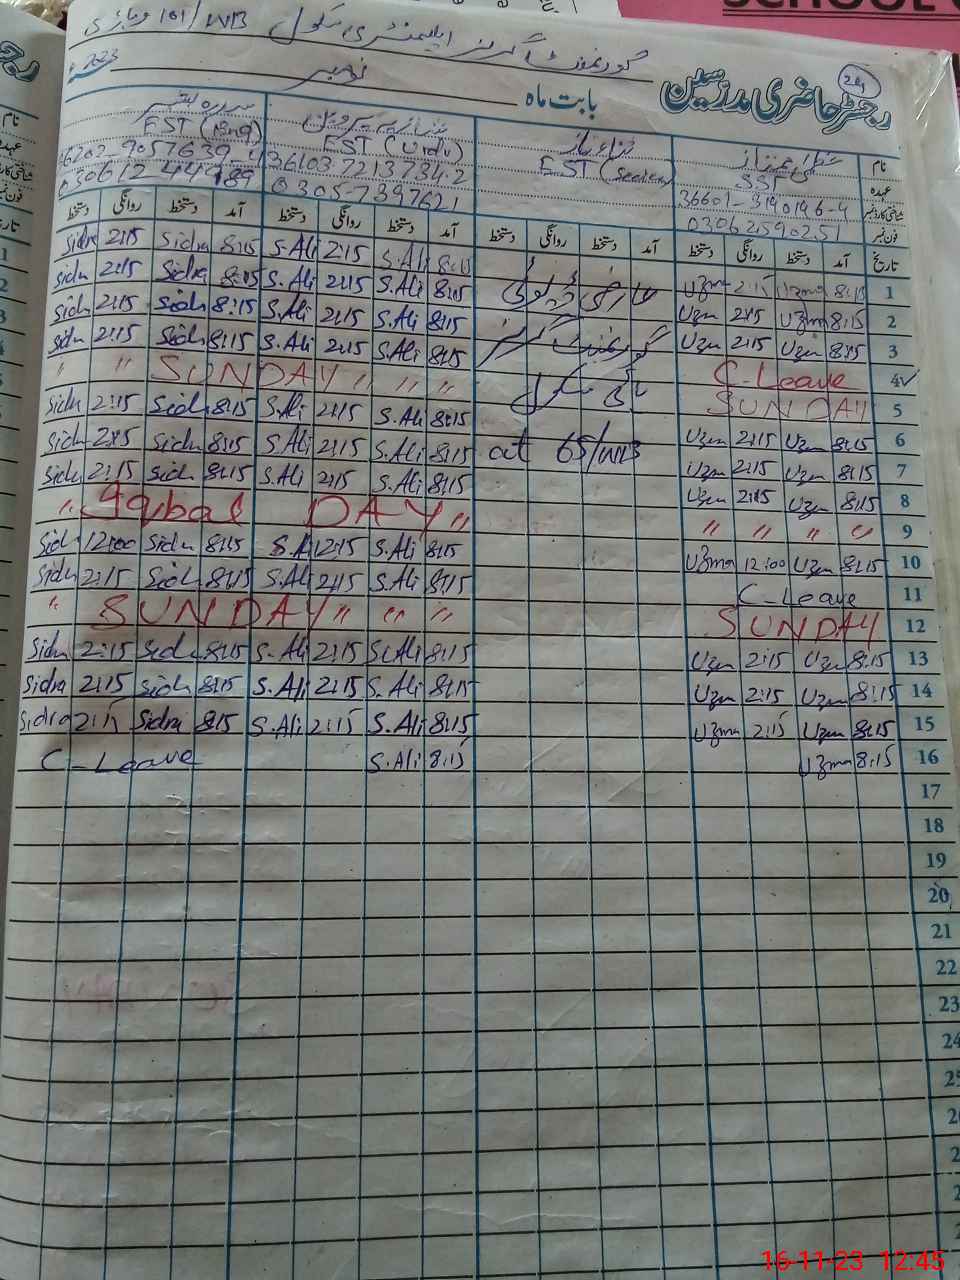 SCHOOL
گورنمنٹ گرلز ایلیمنٹری سکول 101/WB وہاڑی
رجسٹر حاضری مدرسین
بابت ماہ نومبر 2023ء
نام عظمیٰ ممتاز ثناء نیاز سدرہ بشیر
عہدہ SST EST (Science) EST (Urdu) EST (Eng)
شناختی کارڈ نمبر
فون نمبر 03062590251 03057397621
تاریخ آمد دستخط روانگی دستخط آمد دستخط روانگی دستخط آمد دستخط روانگی دستخط آمد دستخط روانگی دستخط
Sidra 2:15 Sidra 8:15 S.Ali 2:15 S.Ali 8:15 عارضی ڈیوٹی Uzma 2:15 Uzma 8:15 1
Sidra 2:15 Sidra 8:15 S.Ali 2:15 S.Ali 8:15 Uzma 2:15 Uzma 8:15 2
Sidra 2:15 Sidra 8:15 S.Ali 2:15 S.Ali 8:15 گورنمنٹ گرلز Uzma 2:15 Uzma 8:15 3
Sidra 2:15 Sidra 8:15 S.Ali 2:15 S.Ali 8:15 C-Leave 4
" " SUNDAY " " " ہائی سکول SUNDAY 5
Sidra 2:15 Sidra 8:15 S.Ali 2:15 S.Ali 8:15 at 65/WB Uzma 2:15 Uzma 8:15 6
Sidra 2:15 Sidra 8:15 S.Ali 2:15 S.Ali 8:15 Uzma 2:15 Uzma 8:15 7
Sidra 2:15 Sidra 8:15 S.Ali 2:15 S.Ali 8:15 Uzma 2:15 Uzma 8:15 8
" Iqbal DAY " " " " " 9
Sidra 12:00 Sidra 8:15 S.A 12:15 S.Ali 8:15 Uzma 12:00 Uzma 8:15 10
Sidra 2:15 Sidra 8:15 S.Ali 2:15 S.Ali 8:15 C-Leave 11
" SUNDAY " " " SUNDAY 12
Sidra 2:15 Sidra 8:15 S.Ali 2:15 S.Ali 8:15 Uzma 2:15 Uzma 8:15 13
Sidra 2:15 Sidra 8:15 S.Ali 2:15 S.Ali 8:15 Uzma 2:15 Uzma 8:15 14
Sidra 2:15 Sidra 8:15 S.Ali 2:15 S.Ali 8:15 Uzma 2:15 Uzma 8:15 15
C-Leave S.Ali 8:15 Uzma 8:15 16
17
18
19
20
21
22
23
24
16-11-23 12:45